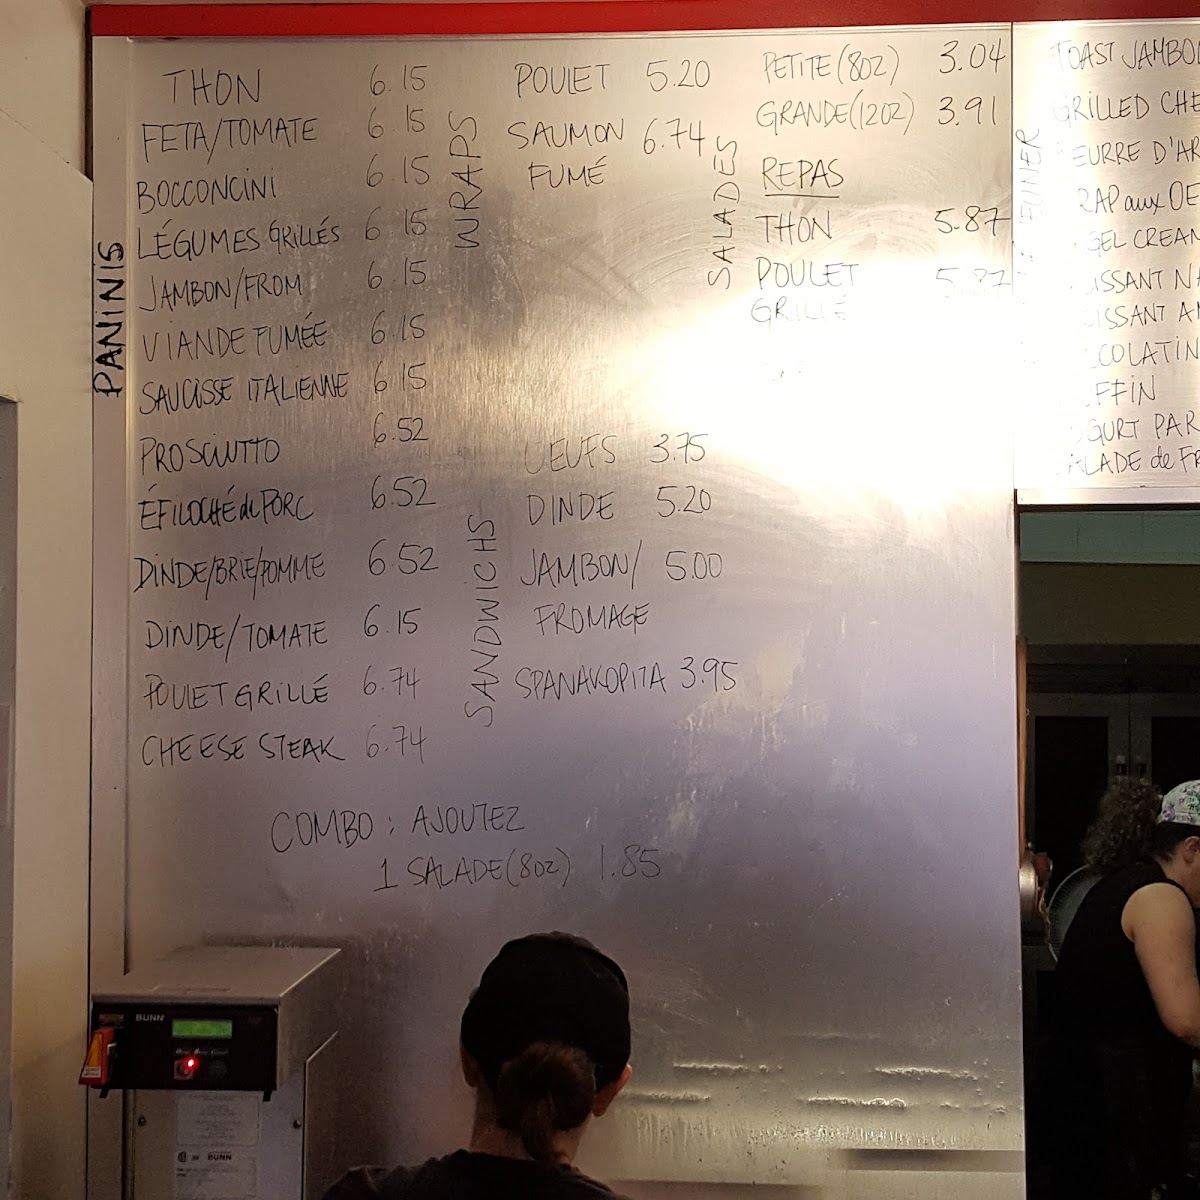 PANINIS
THON 6.15
FETA/TOMATE 6.15
BOCCONCINI 6.15
LÉGUMES GRILLÉS 6.15
JAMBON/FROM. 6.15
VIANDE FUMÉE 6.15
SAUCISSE ITALIENNE 6.15
PROSCIUTTO 6.52
ÉFILOCHÉ de PORC 6.52
DINDE/BRIE/POMME 6.52
DINDE/TOMATE 6.15
POULET GRILLÉ 6.74
CHEESE STEAK 6.74
WRAPS
POULET 5.20
SAUMON 6.74
FUMÉ
SANDWICHS
OEUFS 3.75
DINDE 5.20
JAMBON/ 5.00
FROMAGE
SPANAKOPITA 3.95
SALADES
PETITE (8OZ) 3.04
GRANDE (12OZ) 3.91
REPAS
THON 5.87
POULET 5.87
GRILLÉ
COMBO : AJOUTEZ
1 SALADE (8OZ) 1.85
TOAST JAMBO
GRILLED CHE
EURRE D'AR
RAP aux OE
GEL CREAM
ISSANT NA
ISSANT A
COLATIN
FFIN
GURT PAR
ALADE de FR
BUNN
BUNN